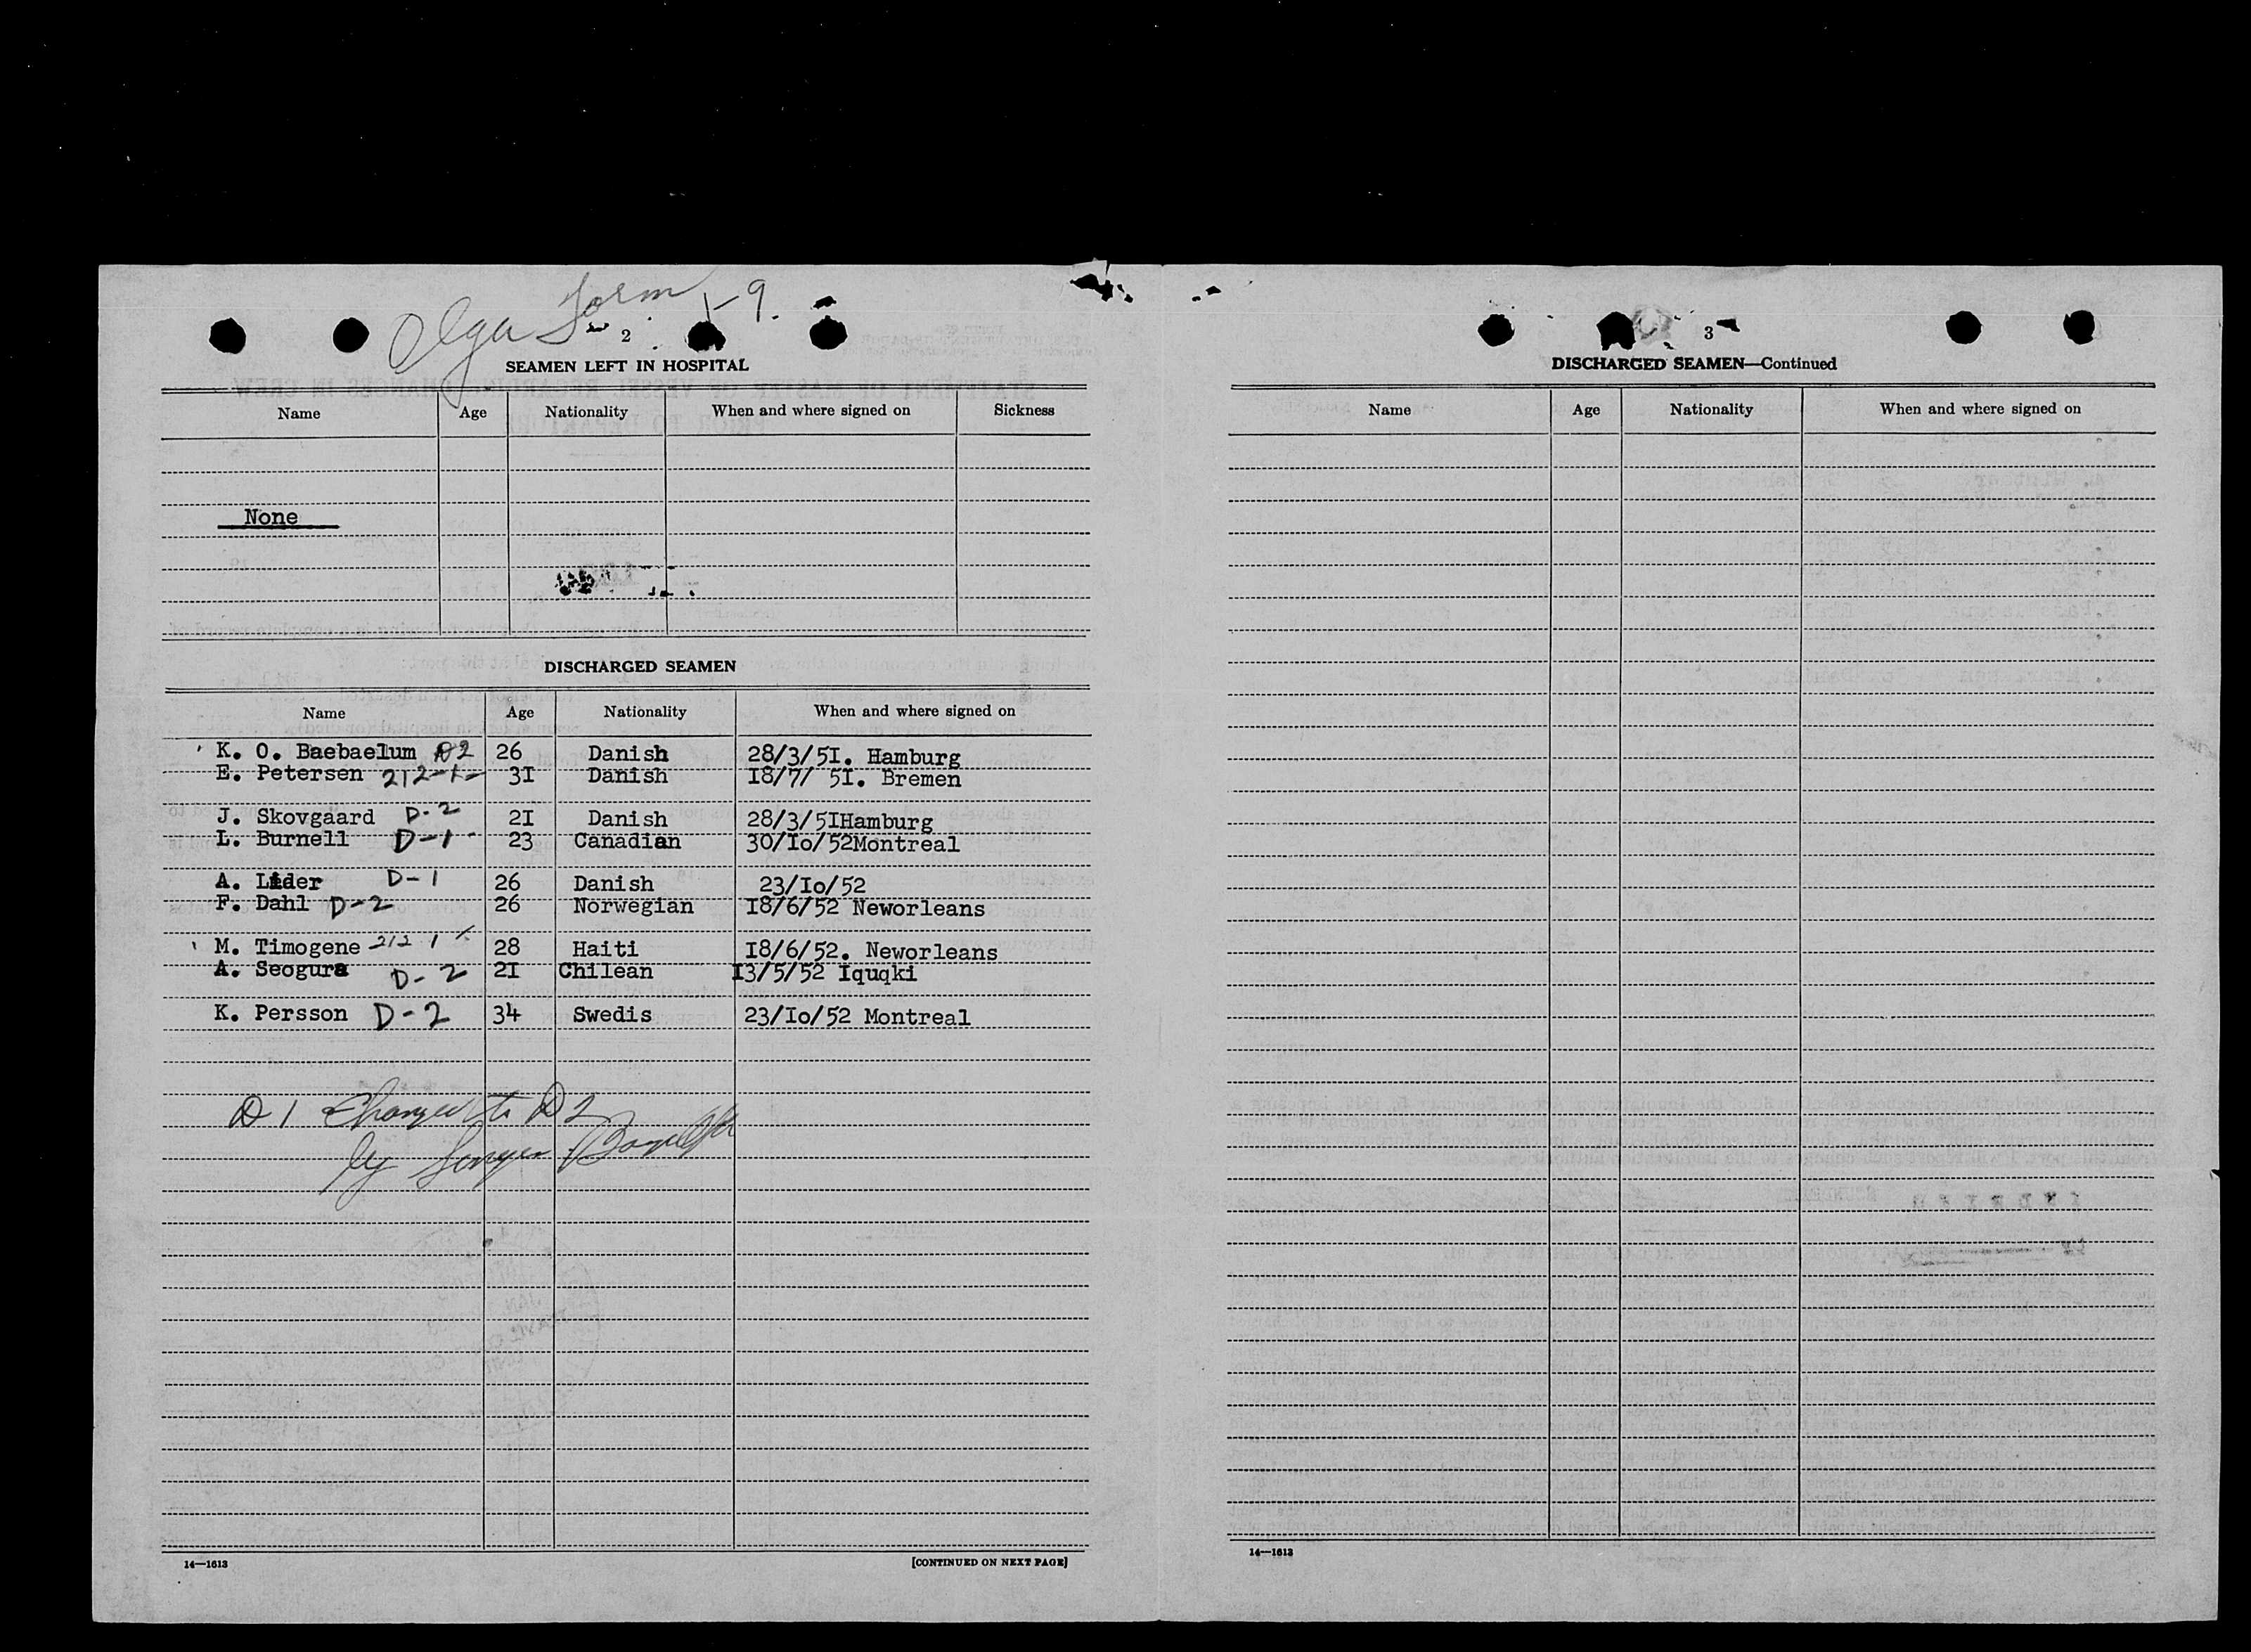 Olga Torm 1-9.
2
SEAMEN LEFT IN HOSPITAL
Name Age Nationality When and where signed on Sickness
None
DISCHARGED SEAMEN
Name Age Nationality When and where signed on
K. O. Baebaelum D2 26 Danish 28/3/5I. Hamburg
E. Petersen 212-1- 3I Danish I8/7/ 5I. Bremen
J. Skovgaard D-2 2I Danish 28/3/5IHamburg
L. Burnell D-1- 23 Canadian 30/Io/52Montreal
A. Lider D-1 26 Danish 23/Io/52
F. Dahl D-2 26 Norwegian I8/6/52 Neworleans
M. Timogene 212 1 28 Haiti I8/6/52. Neworleans
A. Seogura D-2 2I Chilean I3/5/52 Iquqki
K. Persson D-2 34 Swedis 23/Io/52 Montreal
D 1 Changed to D 2
by
14—1613
[CONTINUED ON NEXT PAGE]
3
DISCHARGED SEAMEN—Continued
Name Age Nationality When and where signed on
14—1613